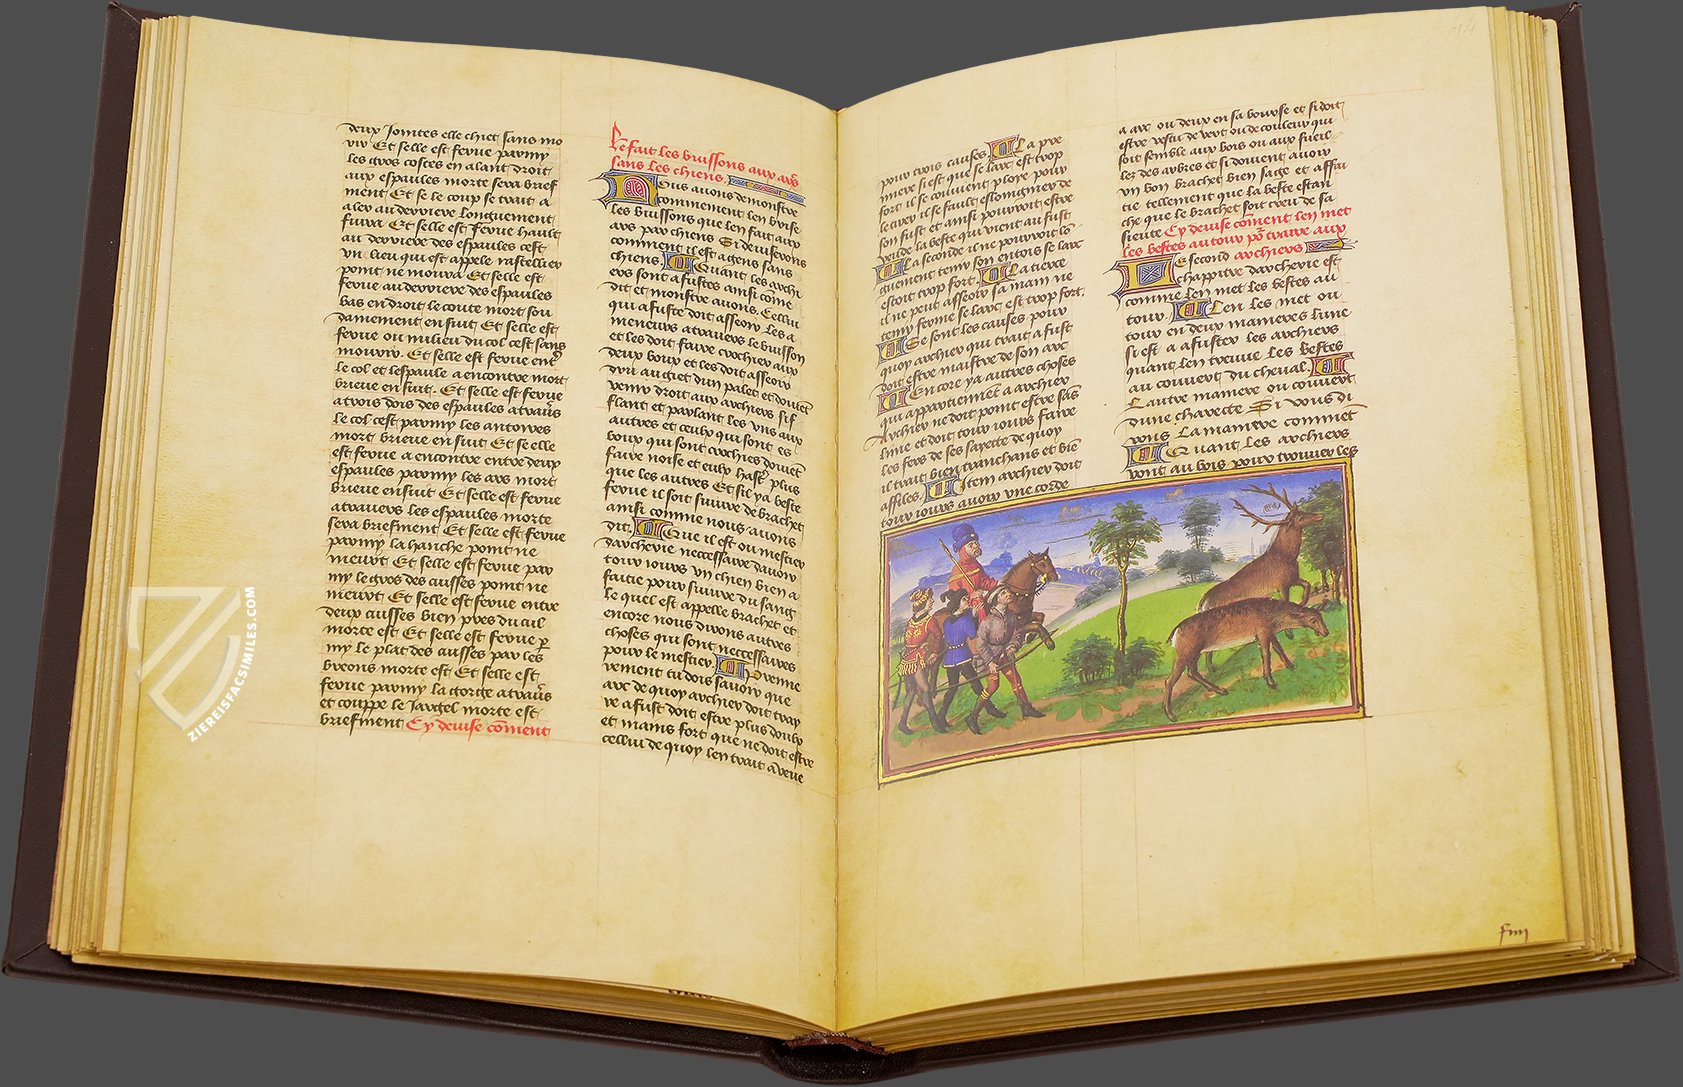 deux jointes elle chiet sans mo
vir Et selle est ferue parmy
les gros costes en alant droit
aux espaules morte sera brief
ment Et se le coup se trait a
aler au derriere longuement
fuira Et selle est ferue hault
au derriere des espaules cest
vn lieu qui est appele rastellier
point ne moura Et selle est
ferue au derriere des espaules
bas en droit le coute mort sou
dainement en suit Et selle est
ferue ou milieu du col cest sans
mourir. Et selle est ferue entre
le col et lespaule a encontre mort
brieue en suit. Et selle est ferue
a trois dois des espaules a trauers
le col cest parmy les antoires
mort brieue en suit Et se elle
est ferue a encontre entre deux
espaules parmy les ars mort
brieue ensuit Et selle est ferue
atrauers les espaules morte
sera briefment Et selle est ferue
parmy la hanche point ne
meurt Et selle est ferue par
my le gros des cuisses point ne
meurt Et selle est ferue entre
deux cuisses bien pres du cul
morte est Et selle est ferue p
my le plat des cuisses par les
breons morte est Et selle est
ferue parmy la gorge atrauers
et couppe le jargel morte est
briefment Cy deuise coment
Len fait les buissons aux ars
sans les chiens.
Nous auons demonstre
commement len boise
les buissons que len fait aux
ars par chiens Si deuiserons
comment il est a gens sans
chiens. Quant les archi
ers sont afustes ainsi come
dit et monstre auons. Cellui
qui afuste doit asseoir les a
meneurs atrauers le buisson
et les doit faire crochier aux
deux bouz et les doit asseoir
dru au giet dun palet et doiuet
venir droit aux archiers sif
flant et parlant les vns aux
autres et ceulx qui sont es
bouz qui sont crochies doiuet
faire noise et eulx haster plus
que les autres Et sil ya beste
ferue il soit suiuie de brachet
ainsi comme nous auons
dit. Que il est ou mestier
darcherie neccessaire dauoir
tour iours vn chien bien a
faitie pour suiure du sang
le quel est appelle brachet et
encore nous dirons autres
choses qui sont neccessaires
pour le mestier. Premie
rement tu dois sauoir que
arc de quoy archier doit tray
re a fust doit estre plus doulx
et mains fort que ne doit estre
cellui de quoy len trait a veue
pour trois causes La pre
miere si est que se larc est trop
fort il se couuient ploye pour
le tirer il se fault eslongnier de
son fust et ainsi pourroit estre
veu de la beste qui vient au fust
La seconde il ne pourroit lo
guement tenir son entois se larc
estoit trop fort. La tierce
il ne peut asseoir sa main ne
tenir ferme se larc est trop fort.
Se sont les causes pour
quoy archier qui trait a fust
doit estre maistre de son arc
Encore ya autres choses
qui appartiennet a archier
Archier ne doit point estre sas
lime et doit tour iours faire
les fers de ses sayette de quoy
il trait bien tranchans et bie
affiles. Item archier doit
tour iours auoir vne corde
a arc ou deux en sa bourse et si doit
estre vestu de vert ou de couleur qui
soit semble aux bois ou aux fueil
les des arbres et si doiuent auoir
vn bon brachet bien sage et affai
tie tellement que la beste estan
che que le brachet soit creu de sa
sieute Cy deuise coment len met
les bestes autour por traire aux
archiers
Le second
chappitre darcherie est
comme len met les bestes au
tour. Len les met ou
tour en deux manieres lune
si est a afuster les archiers
quant len treuue les bestes
au couuert du cheual.
Lautre maniere ou couuert
dune charette Si vous di
rons la maniere commet
Quant les archiers
vont au bois pour trouuer les
44
fiiij
ZIEREISFACSIMILES.COM